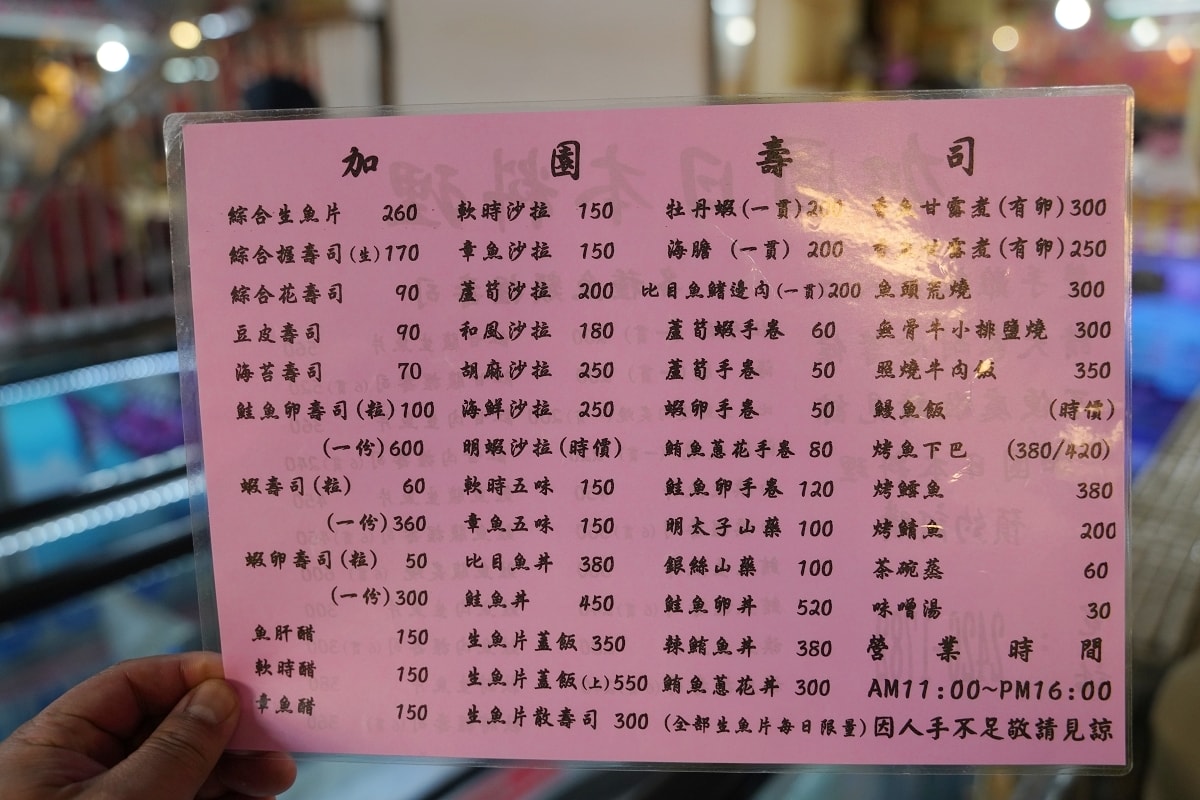 加園壽司
綜合生魚片 260
綜合握壽司(生) 170
綜合花壽司 90
豆皮壽司 90
海苔壽司 70
鮭魚卵壽司(粒) 100
(一份) 600
蝦壽司(粒) 60
(一份) 360
蝦卵壽司(粒) 50
(一份) 300
魚肝醋 150
軟時醋 150
章魚醋 150
軟時沙拉 150
章魚沙拉 150
蘆荀沙拉 200
和風沙拉 180
胡麻沙拉 250
海鮮沙拉 250
明蝦沙拉(時價)
軟時五味 150
章魚五味 150
比目魚丼 380
鮭魚丼 450
生魚片蓋飯 350
生魚片蓋飯(上) 550
生魚片散壽司 300
牡丹蝦(一貫) 200
海膽 (一貫) 200
比目魚鰭邊肉(一貫) 200
蘆荀蝦手卷 60
蘆荀手卷 50
蝦卵手卷 50
鮪魚蔥花手卷 80
鮭魚卵手卷 120
明太子山藥 100
銀絲山藥 100
鮭魚卵丼 520
辣鮪魚丼 380
鮪魚蔥花丼 300
(全部生魚片每日限量)
甘露煮(有卵) 300
甘露煮(有卵) 250
魚頭荒燒 300
無骨牛小排鹽燒 300
照燒牛肉飯 350
鰻魚飯 (時價)
烤魚下巴 (380/420)
烤鱈魚 380
烤鯖魚 200
茶碗蒸 60
味噌湯 30
營業時間
AM11:00~PM16:00
因人手不足敬請見諒